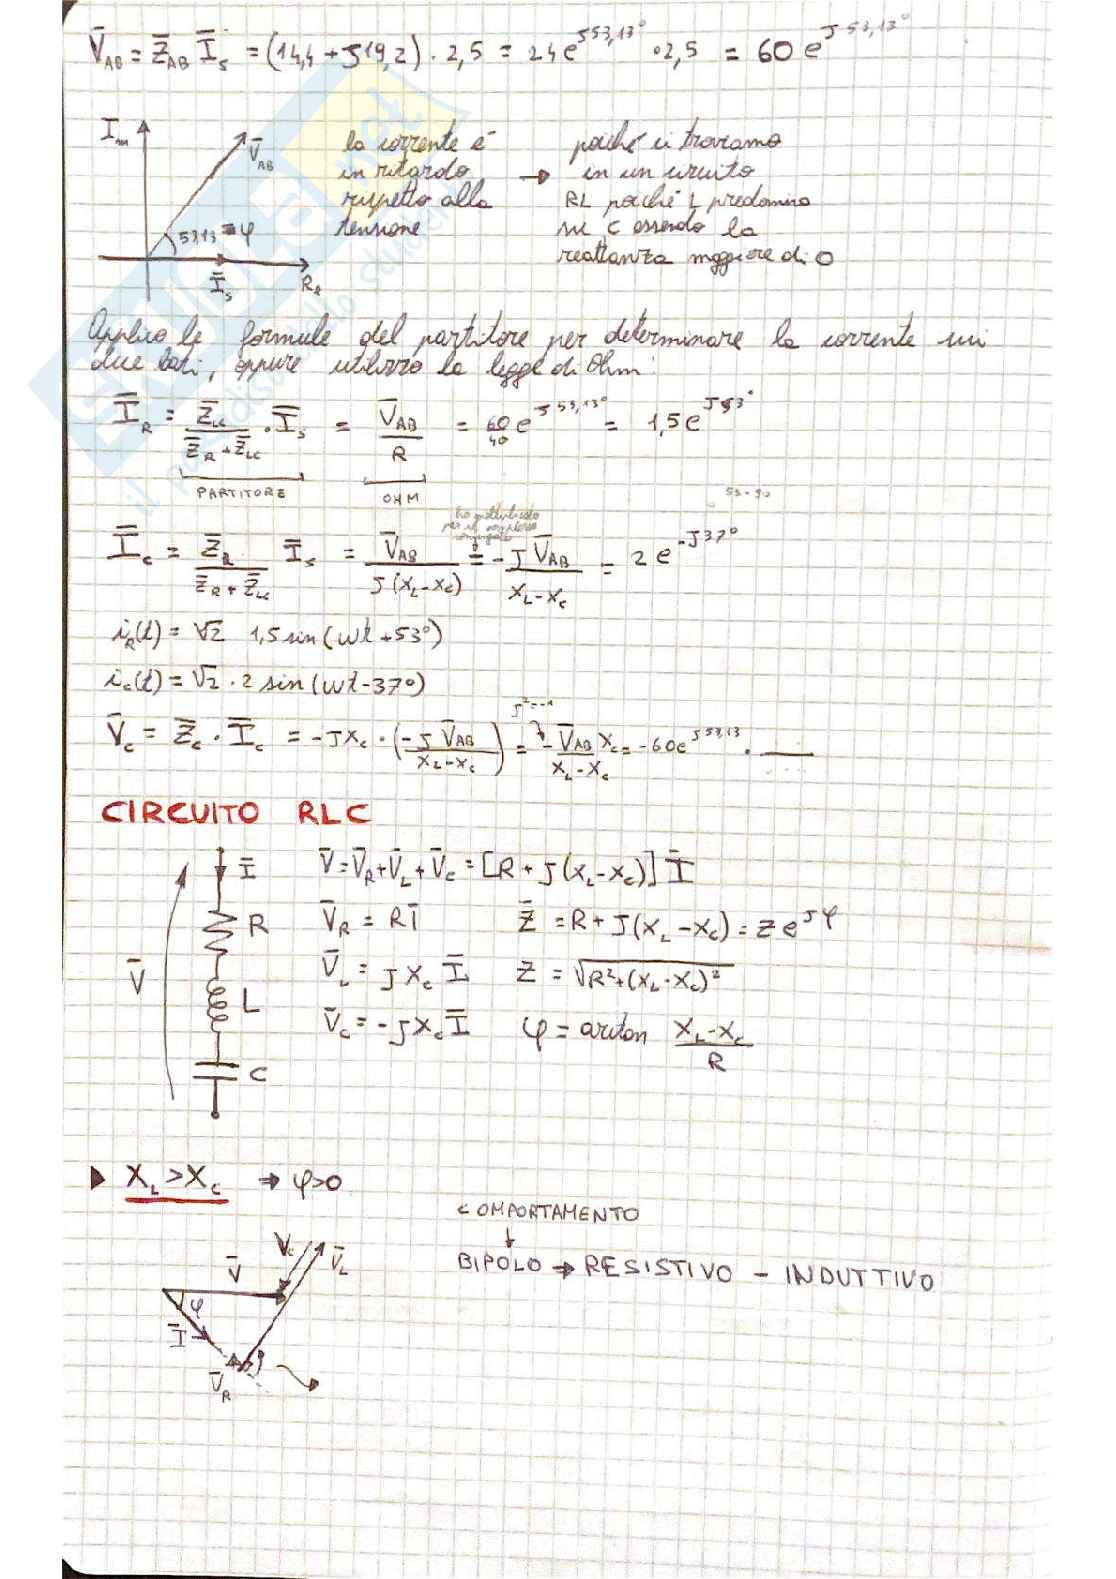 V̄_AB = Z̄_AB Ī_s = (14,4 + J19,2) · 2,5 = 24 e^J53,13° · 2,5 = 60 e^J 53,13°
Im
V̄_AB
53,13 = φ
Ī_s
Re
la corrente è
in ritardo
rispetto alla
tensione
→ poiché ci troviamo
in un circuito
RL poiché L predomina
su C essendo la
reattanza maggiore di 0
Applico le formule del partitore per determinare la corrente nei
due lati, oppure utilizzo la legge di Ohm:
Ī_R = Z̄_LC / (Z̄_R + Z̄_LC) · Ī_s = V̄_AB / R = 60/40 e^J 53,13° = 1,5 e^J53°
PARTITORE
OHM
53-90
ho moltiplicato
per il complesso
coniugato
Ī_c = Z̄_R / (Z̄_R + Z̄_LC) Ī_s = V̄_AB / J(X_L-X_C) = -J V̄_AB / X_L-X_C = 2 e^-J37°
i_R(t) = √2 1,5 sin(ωt+53°)
i_c(t) = √2 · 2 sin(ωt-37°)
J²=-1
V̄_C = Z̄_C · Ī_C = -JX_C · (-J V̄_AB / X_L-X_C) = - V̄_AB / X_L-X_C X_C = -60e^J53,13 ·
CIRCUITO RLC
Ī
R
L
C
V̄
V̄ = V̄_R + V̄_L + V̄_C = [R + J(X_L-X_C)] Ī
V̄_R = RĪ
Z̄ = R + J(X_L-X_C) = Z e^Jφ
V̄_L = J X_C Ī
Z = √R²+(X_L-X_C)²
V̄_C = -JX_C Ī
φ = arctan X_L-X_C / R
▶ X_L > X_C ⇒ φ>0
COMPORTAMENTO
↓
BIPOLO → RESISTIVO - INDUTTIVO
V_C
V̄_L
V̄
φ
Ī
V̄_R
SKUOLA.net